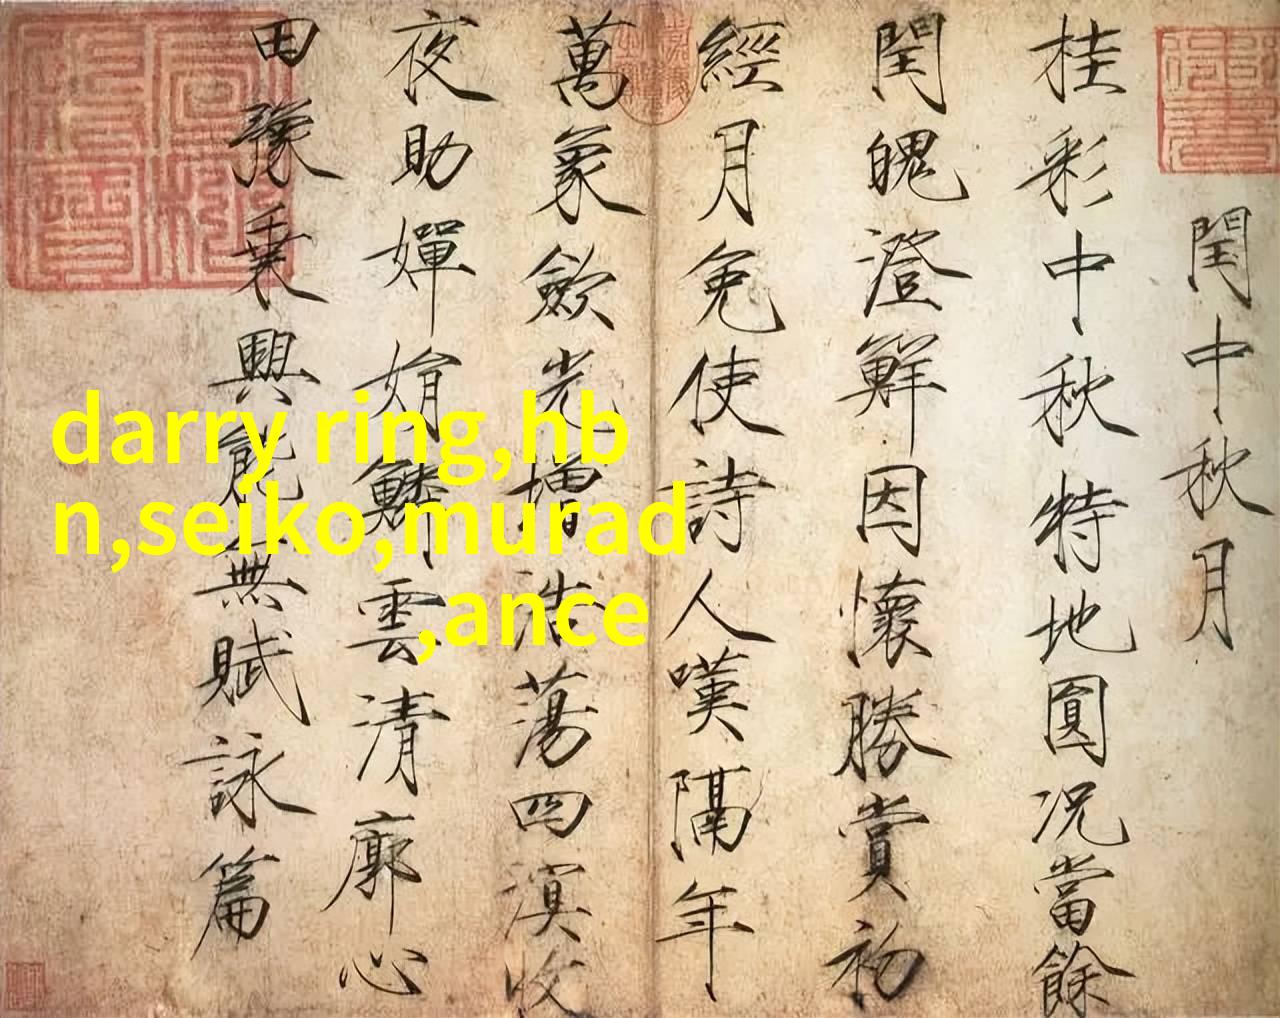 閏中秋月
桂彩中秋特地圓況當餘
閏魄澄鮮因懷勝賞初
經月免使詩人嘆隔年
萬象歛光增浩蕩四溟收
夜助嬋娟鱗雲清廓心
田豫乘興能無賦詠篇
darry ring,hb
n,seiko,murad
,ance